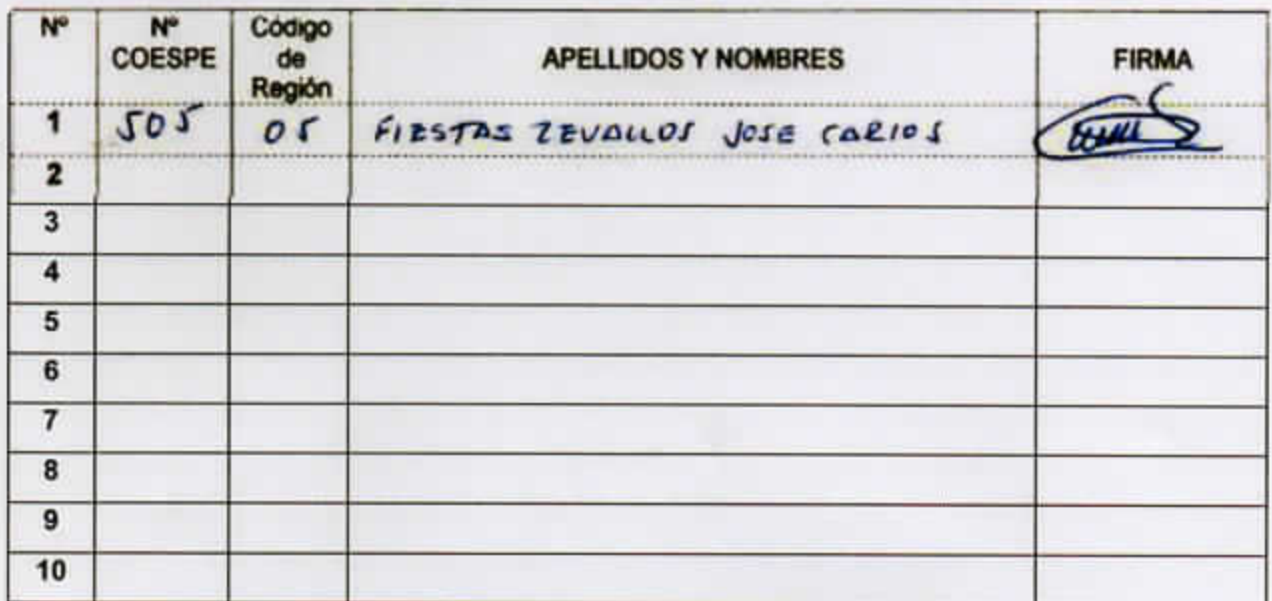 Nº Nº COESPE Código de Región APELLIDOS Y NOMBRES FIRMA
1 505 05 FIESTAS ZEVALLOS JOSE CARLOS
2
3
4
5
6
7
8
9
10